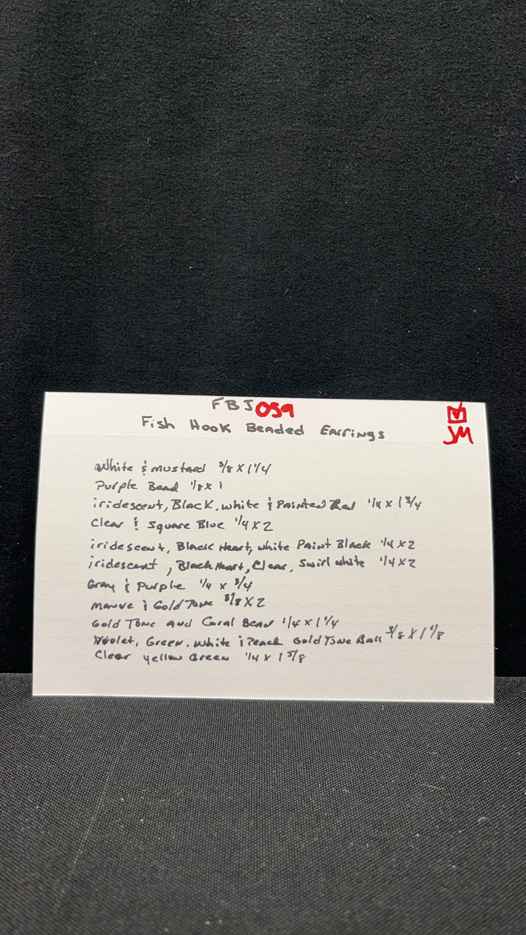 FBJ059
JM
Fish Hook Beaded Earrings
White & Mustard 3/8 X 1 1/4
Purple Bead 1/8 X 1
iridescent, Black, white & Painted Red 1/4 X 1 3/4
Clear & Square Blue 1/4 X 2
iridescent, Black Heart, white Paint Black 1/4 X 2
iridescent, Black Heart, Clear, Swirl white 1/4 X 2
Gray & Purple 1/4 X 3/4
mauve & Gold Tone 3/8 X 2
Gold Tone and Coral Bead 1/4 X 1 1/4
Violet, Green, White & Peach Gold Tone Ball 3/8 X 1 7/8
Clear yellow Green 1/4 X 1 3/8